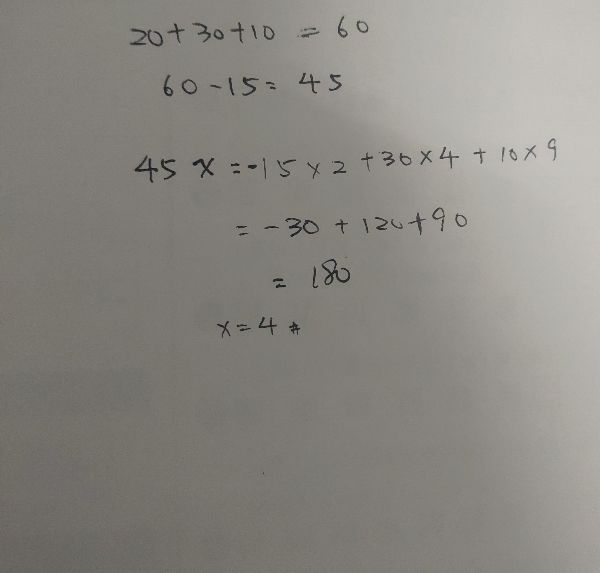 20+30+10 = 60
60-15= 45
45 x =-15×2 +30×4 + 10×9
= -30 + 120+90
= 180
x=4 #